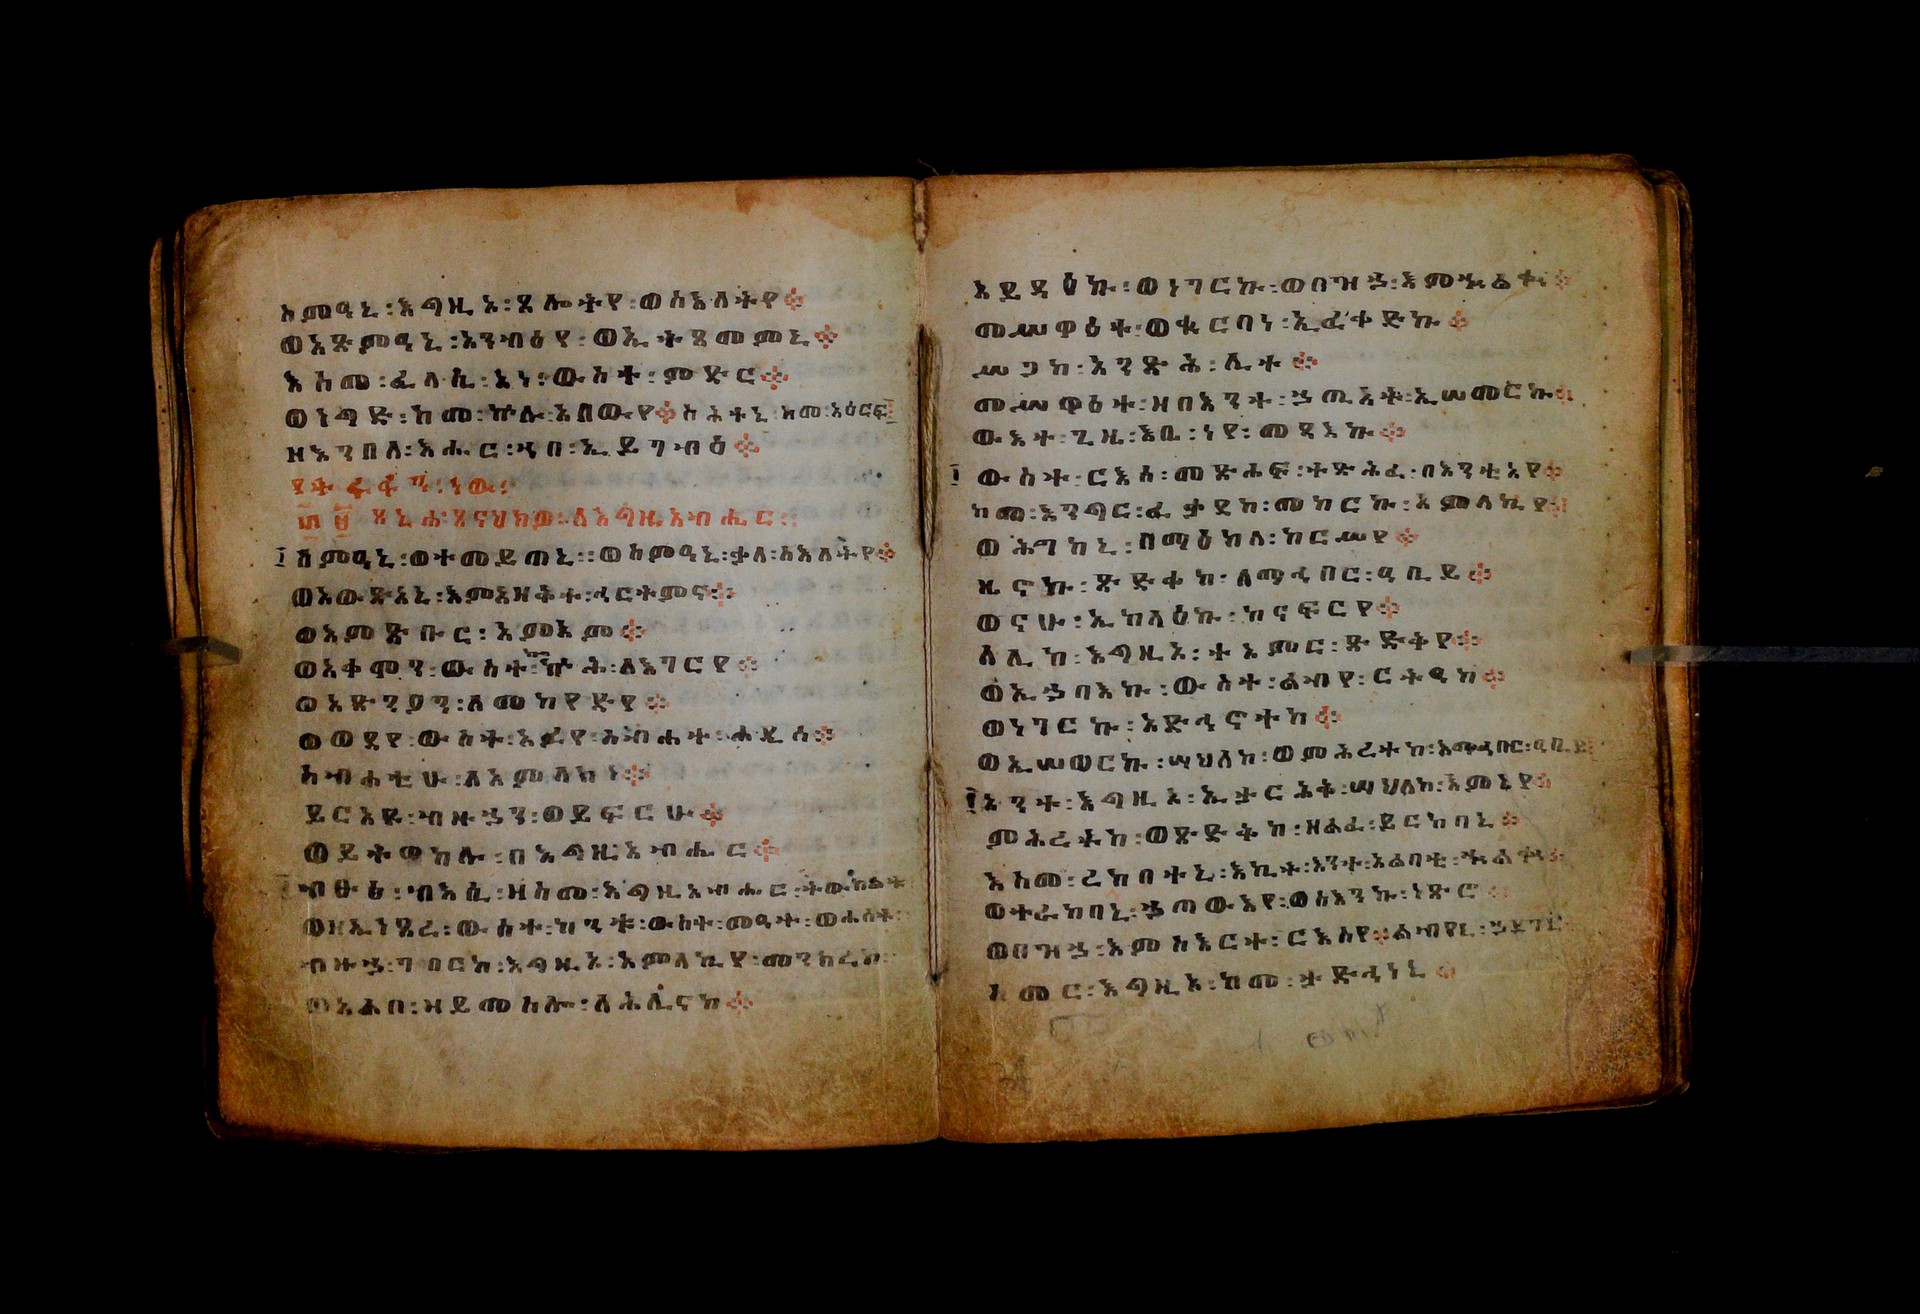 ስምዓኒ፡እግዚኦ፡ጸሎትየ፡ወስእለትየ።
ወአጽምዓኒ፡አንብዕየ፡ወኢትጸመመኒ።
እስመ፡ፈላሲ፡አነ፡ውስተ፡ምድር።
ወነግድ፡ከመ፡ኵሉ፡አበውየ። ስሕተኒ፡ከመ፡አዕርፍ
ዘእንበለ፡እሑር፡ኀበ፡ኢይገብዕ።
፴፱ ጸኒሐ፡ጸናህክዎ፡ለእግዚአብሔር፡
፩ ሰምዓኒ፡ወተመይጠኒ፡፡ወሰምዓኒ፡ቃለ፡ስእለትየ።
ወአውጽአኒ፡እምአዘቅተ፡ኀርትምና።
ወእምጽቡር፡እምአም።
ወአቀሞን፡ውስተ፡ኰኵሕ፡ለእገርየ።
ወአጽንዖን፡ለመከየድየ።
ወወደየ፡ውስተ፡አፉየ፡ስብሐተ፡ሐዲሰ።
ስብሐቲሁ፡ለአምላክነ።
ይርአዩ፡ብዙኃን፡ወይፍርሁ።
ወይትወከሉ፡በእግዚአብሔር።
ብፁዕ፡ብእሲ፡ዘስመ፡እግዚአብሔር፡ትውክልቱ
ወዘኢነጸረ፡ውስተ፡ከንቱ፡ውስተ፡መዓት፡ወሐሰት፡
ብዙኃ፡ገበርከ፡እግዚኦ፡አምላኪየ፡መንክረከ፡
ወአልቦ፡ዘይመስሎ፡ለሕሊናከ።
አይዳዕኩ፡ወነገርኩ፡ወበዝኃ፡እምኍልቍ።
መሥዋዕተ፡ወቍርባነ፡ኢፈቀድኩ።
ሥጋከ፡አንጽሕ፡ሊተ።
መሥዋዕተ፡ዘበእንተ፡ኃጢአት፡ኢሠመርኩ።
ውእተ፡ጊዜ፡እቤ፡ነየ፡መጻእኩ።
ውስተ፡ርእሰ፡መጽሐፍ፡ተጽሕፈ፡በእንቲአየ።
ከመ፡እንግር፡ፈቃደከ፡መከርኩ፡አምላኪየ።
ወሕግከኒ፡በማዕከለ፡ከርሥየ።
ዜኖኩ፡ጽድቀከ፡ለማኅበር፡ዓቢይ።
ወናሁ፡ኢከላዕኩ፡ከናፍርየ።
ለሊከ፡እግዚኦ፡ተአምር፡ጽድቅየ።
ወኢኃባእኩ፡ውስተ፡ልብየ፡ርትዓከ።
ወነገርኩ፡አድኅኖተከ።
ወኢሠወርኩ፡ሣህለከ፡ወምሕረተከ፡እማኅበር፡ዓቢይ።
አንተ፡እግዚኦ፡ኢታርሕቅ፡ሣህለከ፡እምኔየ።
ምሕረትከ፡ወጽድቅከ፡ዘልፈ፡ይርከባኒ።
እስመ፡ረከበተኒ፡እኪት፡እንተ፡አልባቲ፡ኍልቍ።
ወተራከባኒ፡ኃጣውእየ፡ወስእንኩ፡ነጽሮ።
ወበዝኃ፡እምስእርተ፡ርእስየ።ልብየኒ፡ኃደገኒ።
ሥመር፡እግዚኦ፡ከመ፡ታድኅነኒ።